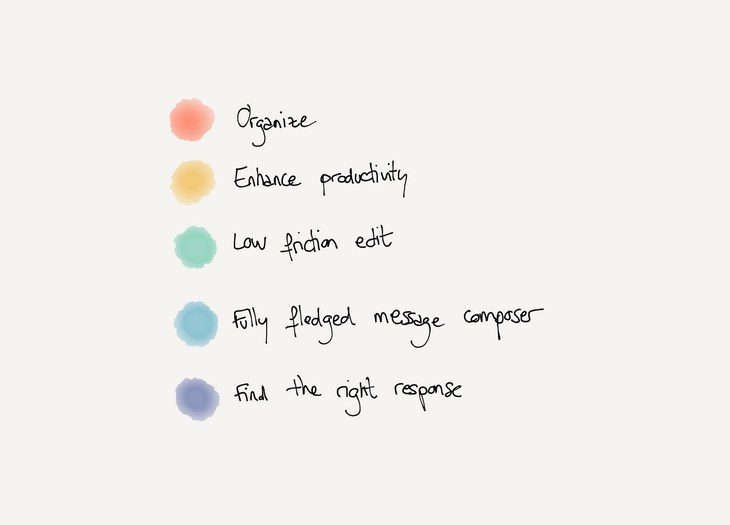 Organize
Enhance productivity
Low friction edit
Fully fledged message composer
Find the right response